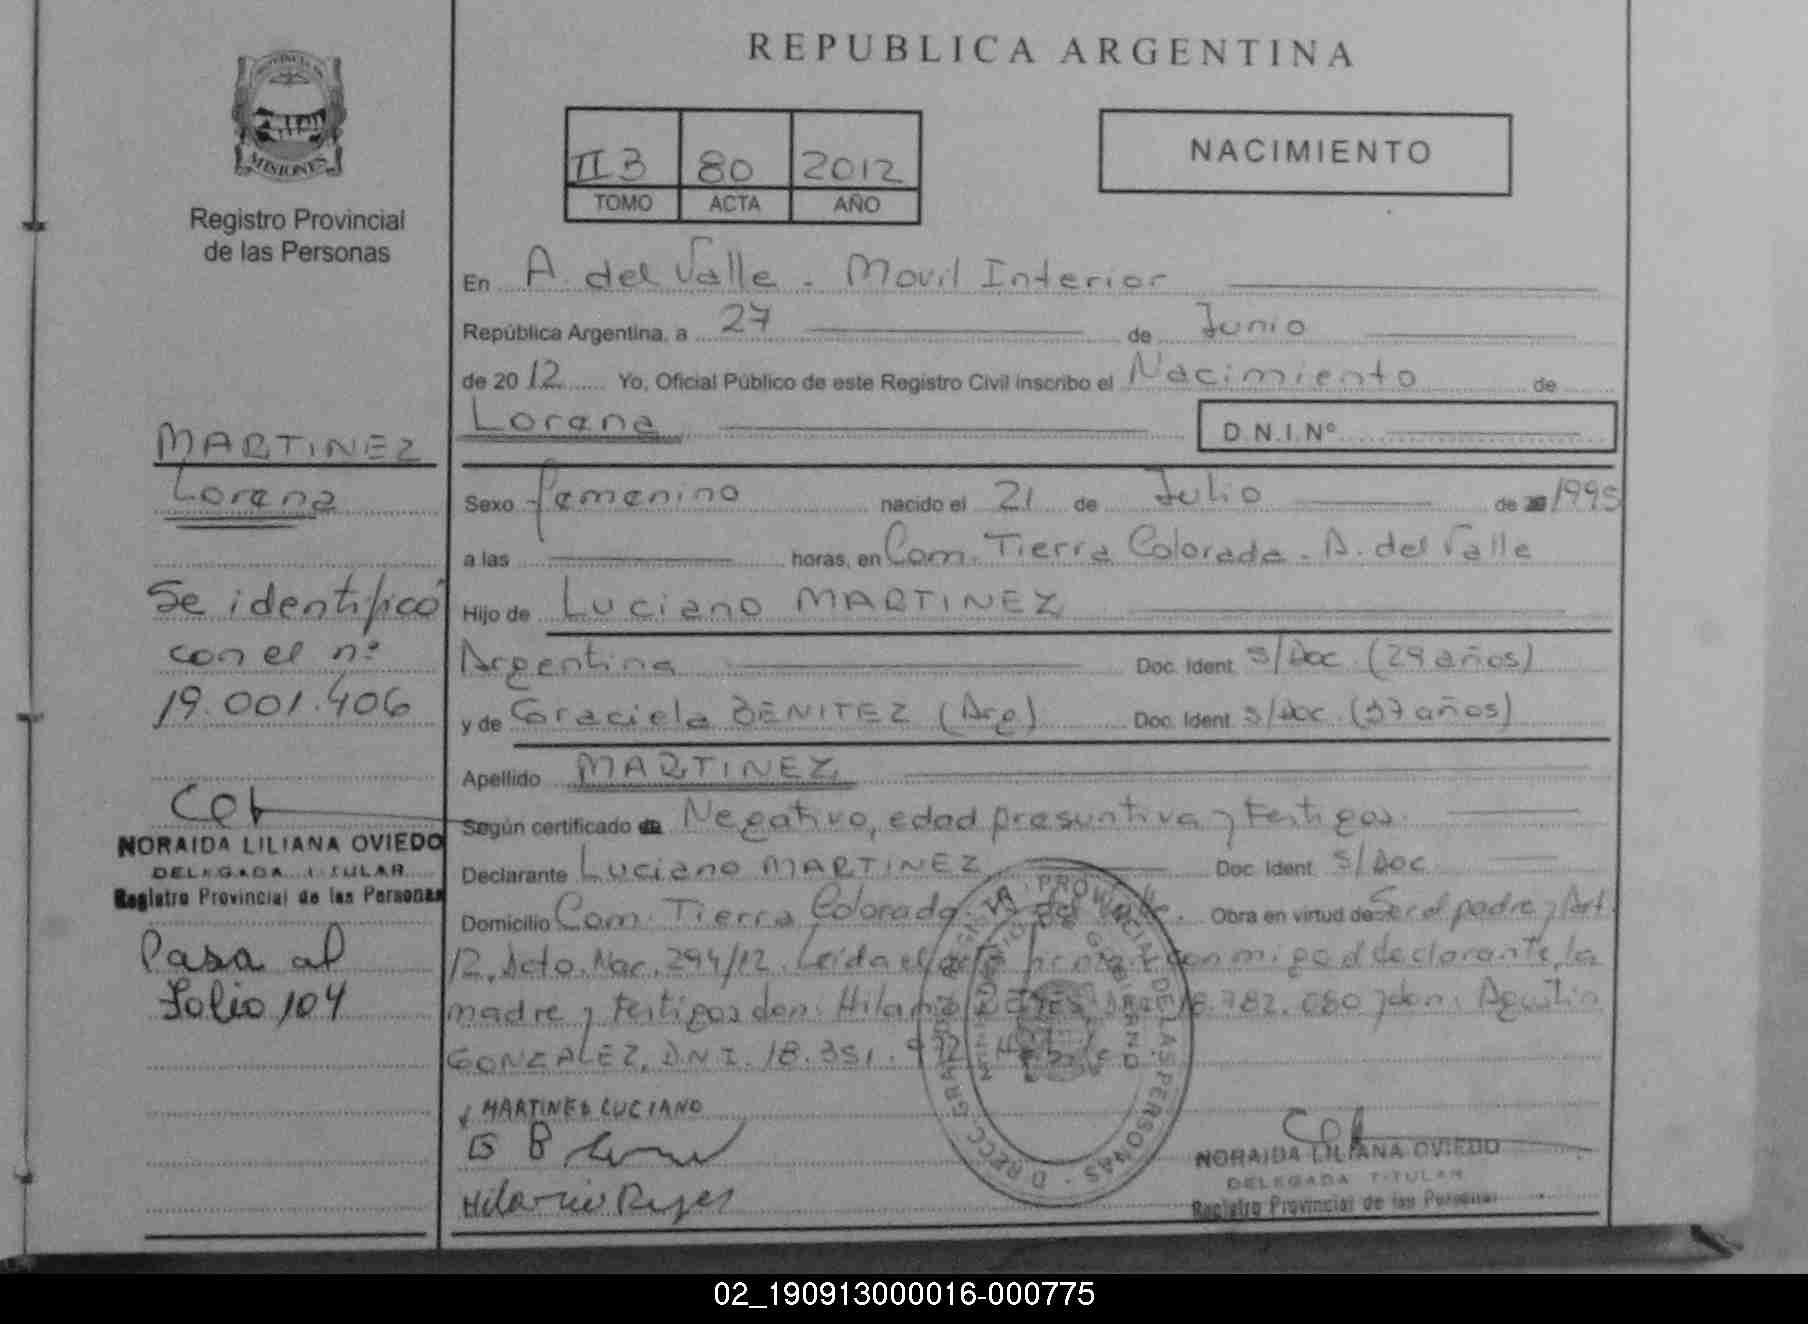 REPUBLICA ARGENTINA
PROVINCIA DE
MISIONES
Registro Provincial
de las Personas
II B 80 2012
TOMO ACTA AÑO
NACIMIENTO
En A. del Valle - Movil Interior
República Argentina, a 27 de Junio
de 2012 Yo, Oficial Público de este Registro Civil inscribo el Nacimiento de
Lorena D.N.I.Nº
Sexo femenino nacido el 21 de Julio de 1995
a las horas, en Com. Tierra Colorada - A. del Valle
Hijo de Luciano MARTINEZ
Argentina Doc. Ident. S/Doc (29 años)
y de Graciela BENITEZ (Arg) Doc. Ident. S/Doc (37 años)
Apellido MARTINEZ
Según certificado Negativo, edad presuntiva y testigos.
Declarante Luciano MARTINEZ Doc. Ident. S/Doc
Domicilio Com. Tierra Colorada - A. del Valle. Obra en virtud de Ser el padre y Art.
12, Dcto. Nac. 294/12. Leída el acta firman conmigo el declarante, la
madre y testigos don: Hilario 18.782.080 y don: Agustin
GONZALEZ, D.N.I. 18.351.972
MARTINEZ LUCIANO
Hilario Reyes
NORAIDA LILIANA OVIEDO
DELEGADA TITULAR
Registro Provincial de las Personas
MARTINEZ
Lorena
Se identificó
con el nº
19.001.406
NORAIDA LILIANA OVIEDO
DELEGADA TITULAR
Registro Provincial de las Personas
Pasa al
Folio 104
02_190913000016-000775